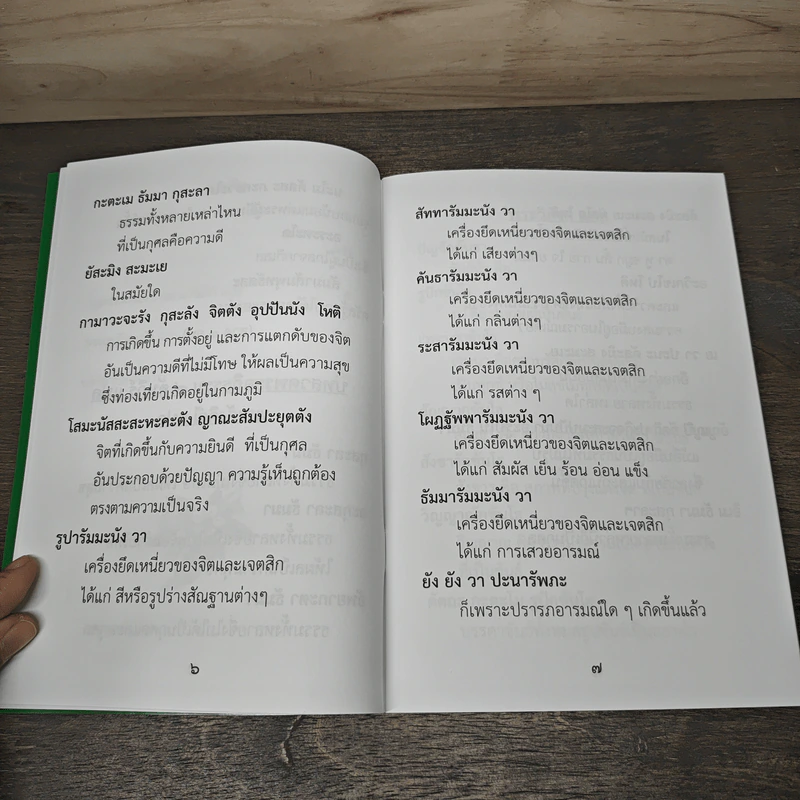 กะตะเม ธัมมา กุสะลา
ธรรมทั้งหลายเหล่าไหน
ที่เป็นกุศลคือความดี
ยัสะมิง สะมะเย
ในสมัยใด
กามาวะจะรัง กุสะลัง จิตตัง อุปปันนัง โหติ
การเกิดขึ้น การตั้งอยู่ และการแตกดับของจิต
อันเป็นความดีที่ไม่มีโทษ ให้ผลเป็นความสุข
ซึ่งท่องเที่ยวเกิดอยู่ในกามภูมิ
โสมะนัสสะสะหะคะตัง ญาณะสัมปะยุตตัง
จิตที่เกิดขึ้นกับความยินดี ที่เป็นกุศล
อันประกอบด้วยปัญญา ความรู้เห็นถูกต้อง
ตรงตามความเป็นจริง
รูปารัมมะนัง วา
เครื่องยึดเหนี่ยวของจิตและเจตสิก
ได้แก่ สีหรือรูปร่างสัณฐานต่างๆ
๖
สัททารัมมะนัง วา
เครื่องยึดเหนี่ยวของจิตและเจตสิก
ได้แก่ เสียงต่างๆ
คันธารัมมะนัง วา
เครื่องยึดเหนี่ยวของจิตและเจตสิก
ได้แก่ กลิ่นต่างๆ
ระสารัมมะนัง วา
เครื่องยึดเหนี่ยวของจิตและเจตสิก
ได้แก่ รสต่าง ๆ
โผฏฐัพพารัมมะนัง วา
เครื่องยึดเหนี่ยวของจิตและเจตสิก
ได้แก่ สัมผัส เย็น ร้อน อ่อน แข็ง
ธัมมารัมมะนัง วา
เครื่องยึดเหนี่ยวของจิตและเจตสิก
ได้แก่ การเสวยอารมณ์
ยัง ยัง วา ปะนารัพภะ
ก็เพราะปรารภอารมณ์ใด ๆ เกิดขึ้นแล้ว
๗